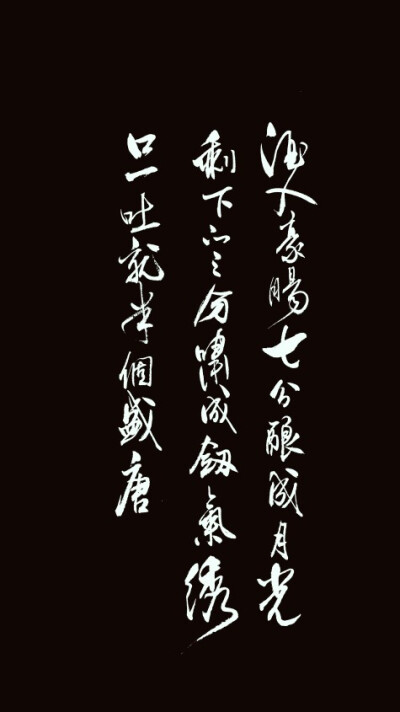 酒入豪腸七分酿成月光
剩下的三分嘯成劍氣綉
口一吐就半個盛唐